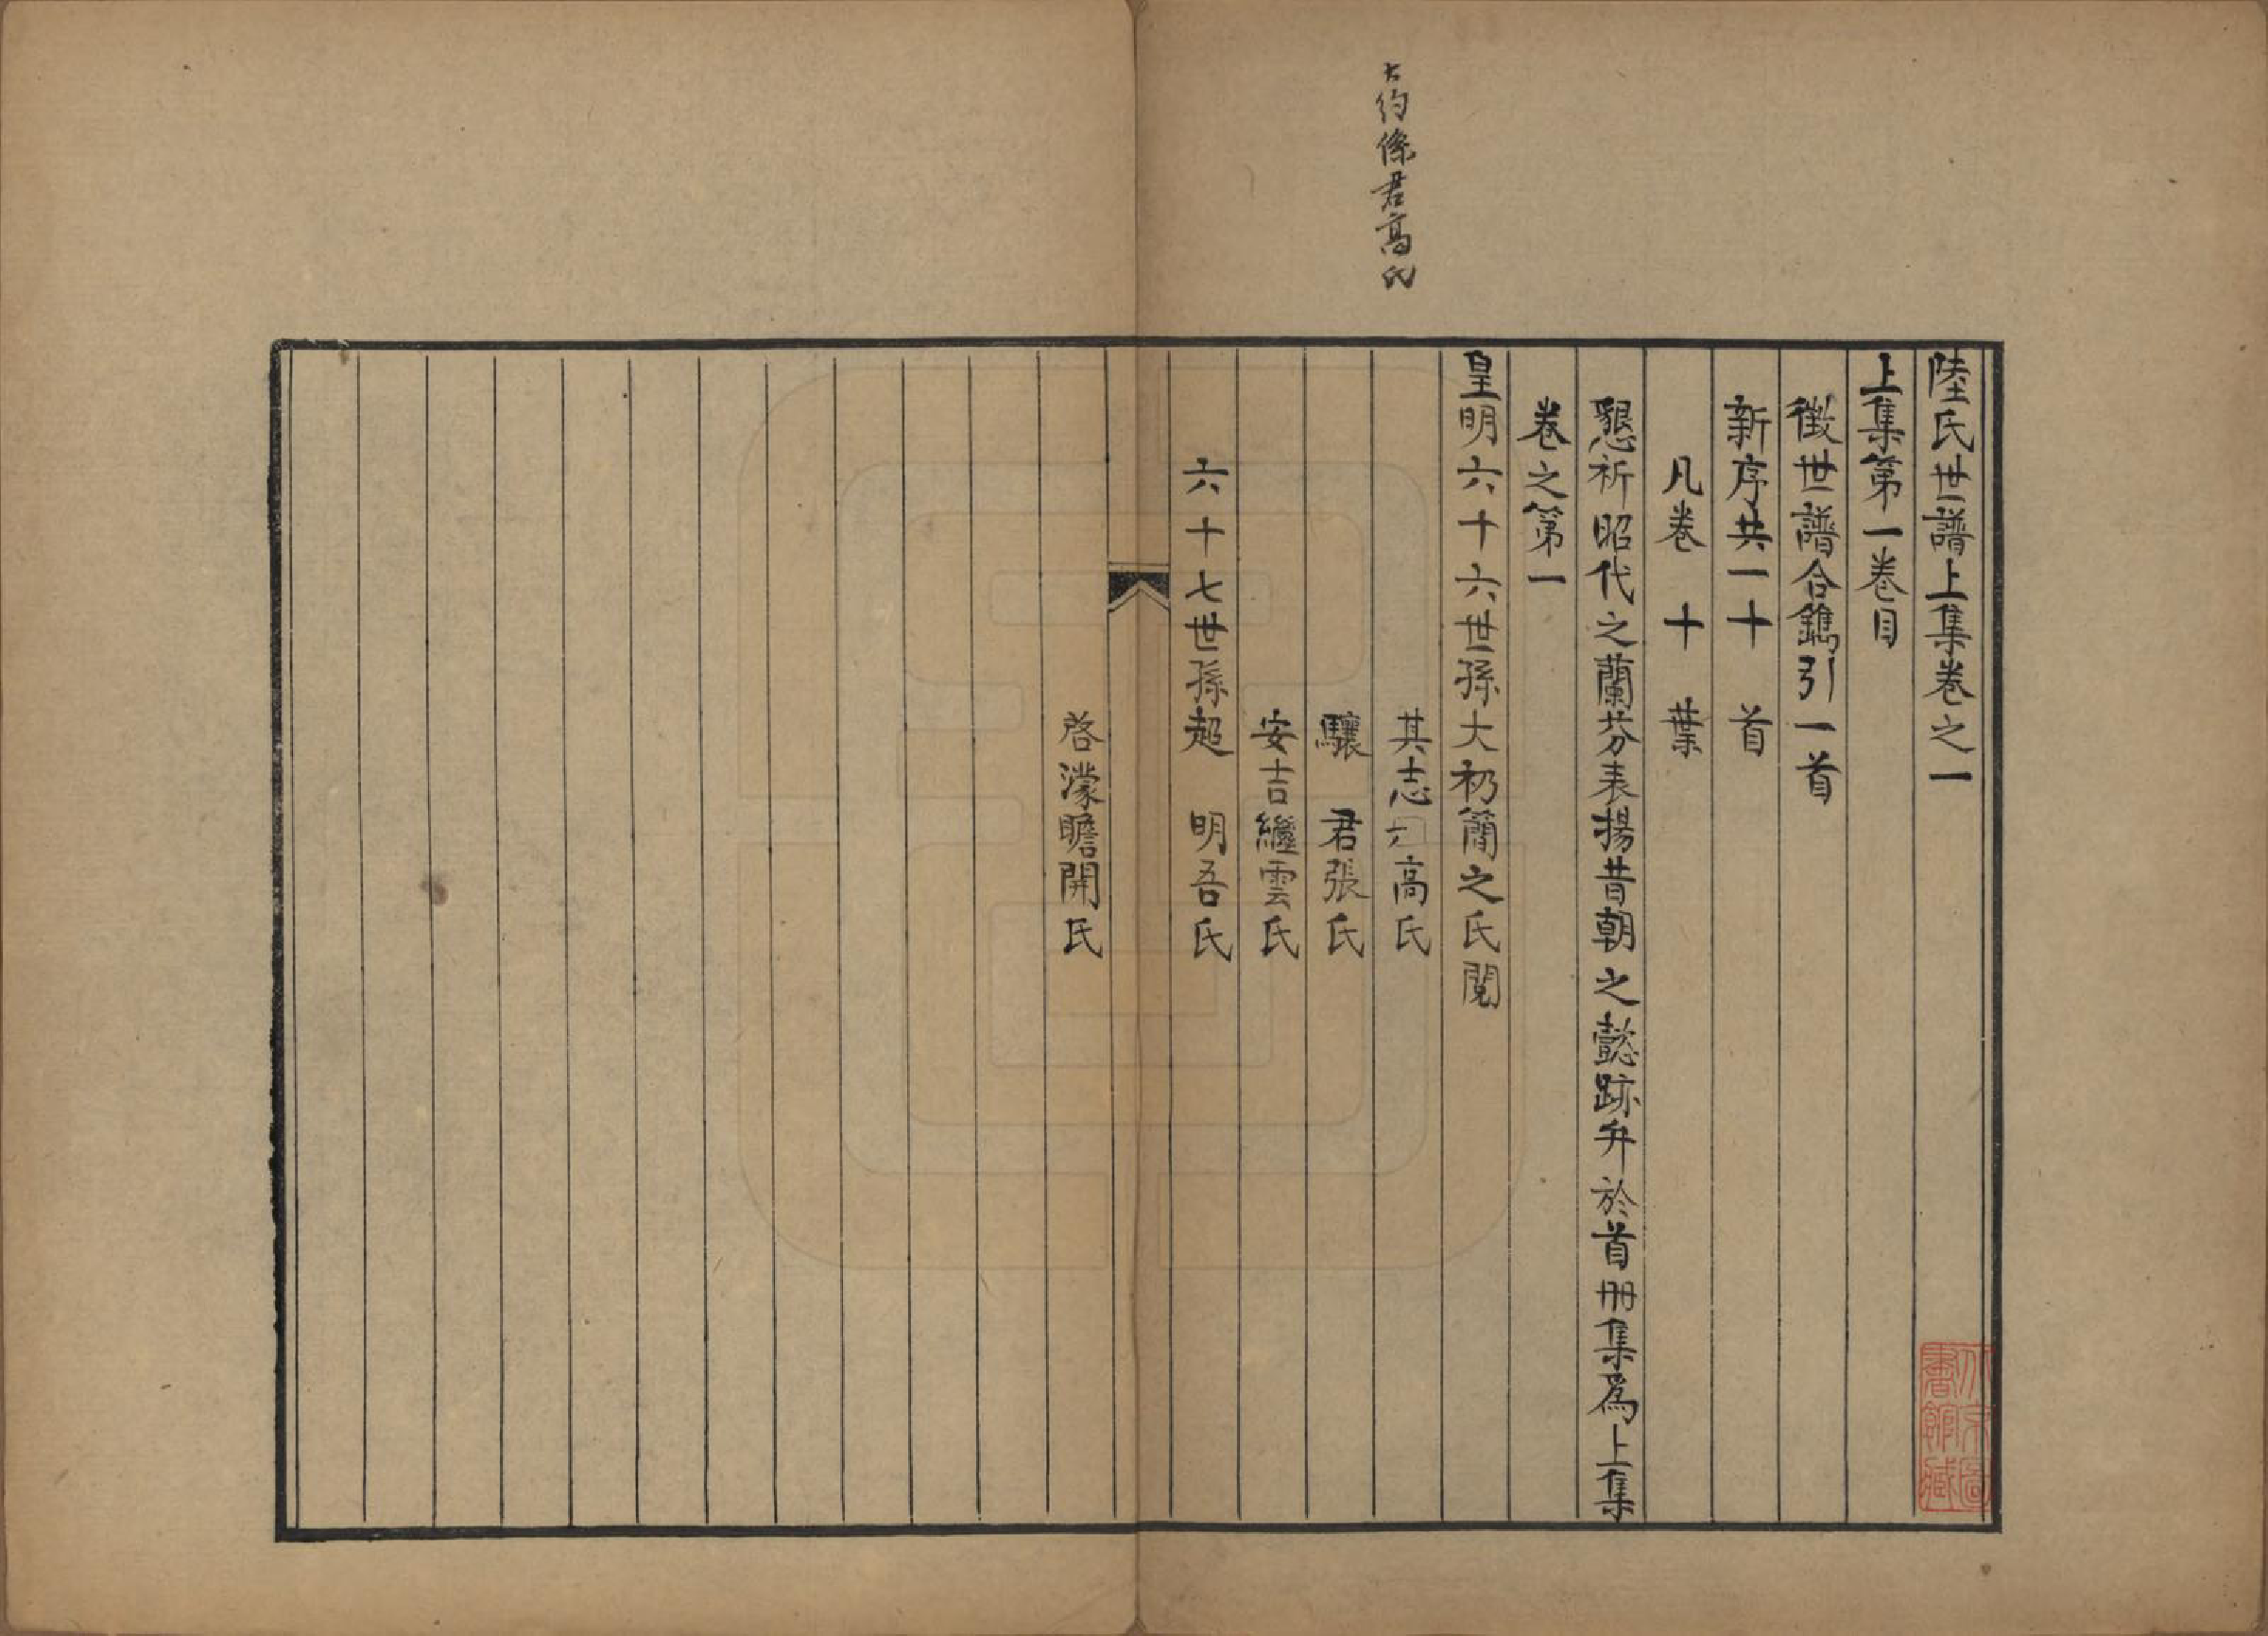 大約係君高氏
陸氏世譜上集卷之一
上集第一卷目
徵世譜合鐫引一首
新序共一十首
凡卷十葉
懇祈昭代之蘭芬表揚昔朝之懿跡弁於首冊集爲上集
卷之第一
皇明六十六世孫大礽簡之氏閱
其志高氏
驤君張氏
安吉繼雲氏
六十七世孫超明吾氏
啓濛瞻開氏